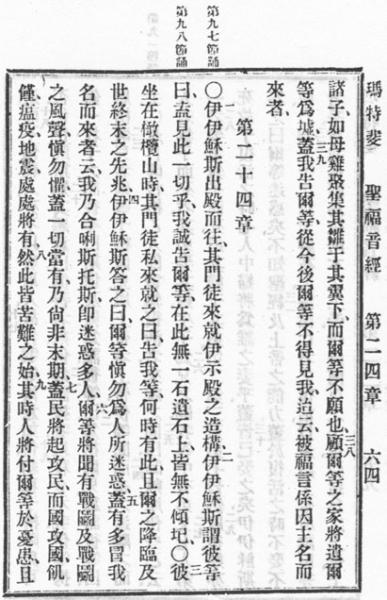 瑪特斐 聖福音經 第二四章 六四
諸子如母雞聚集其雛于其翼下而爾等不願也三八顧爾等之家將遺爾
等爲墟三九蓋我告爾等從今後爾等不得見我迨云被福言係因主名而
來者
第二十四章
第九七節誦
〇一伊伊穌斯出殿而往其門徒來就伊示殿之造構二伊伊穌斯謂彼等
曰盍見此一切乎我誠告爾等在此無一石遺石上皆無不傾圮〇三彼
第九八節誦
坐在橄欖山時其門徒私來就之曰告我等何時有此且爾之降臨及
世終末之先兆四伊伊穌斯答之曰爾等愼勿爲人所迷惑五蓋有多冒我
名而來者云我乃合唎斯托斯卽迷惑多人六爾等將聞有戰鬬及戰鬬
之風聲愼勿懼蓋一切當有乃尙非末期七蓋民將起攻民而國攻國飢
僅瘟疫地震處處將有八然此皆苦難之始九其時人將付爾等於憂患且